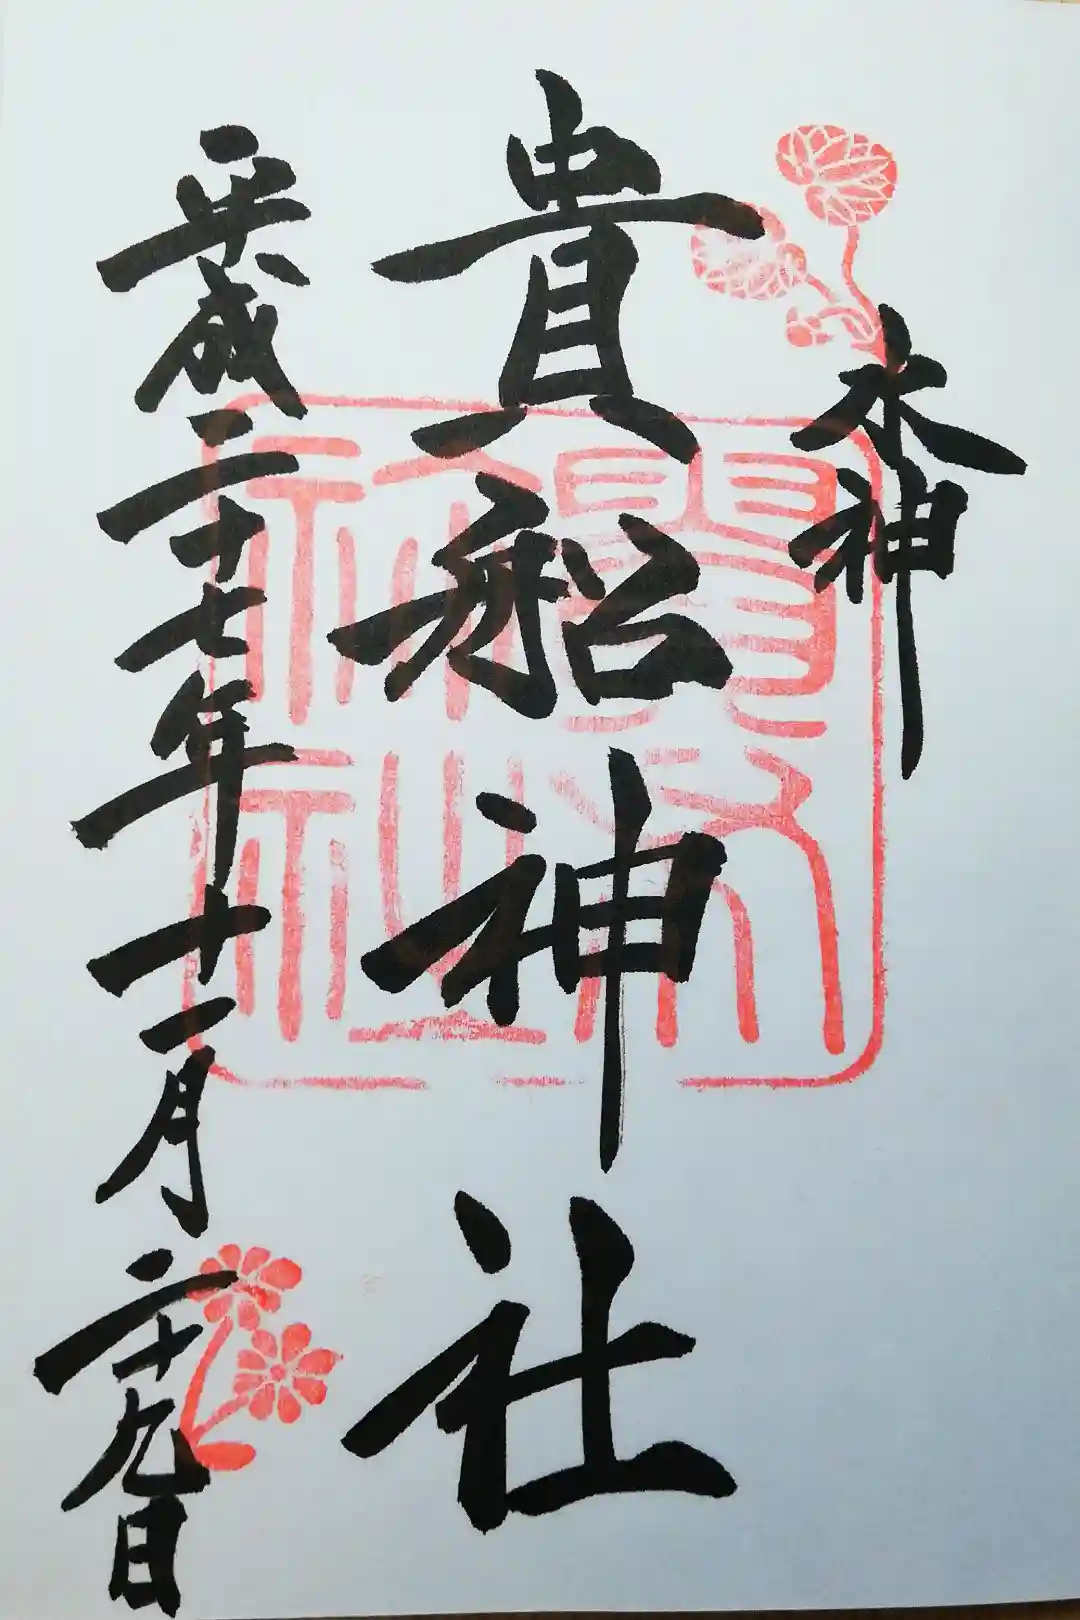 水神
貴船神社
平成二十七年十一月二十九日